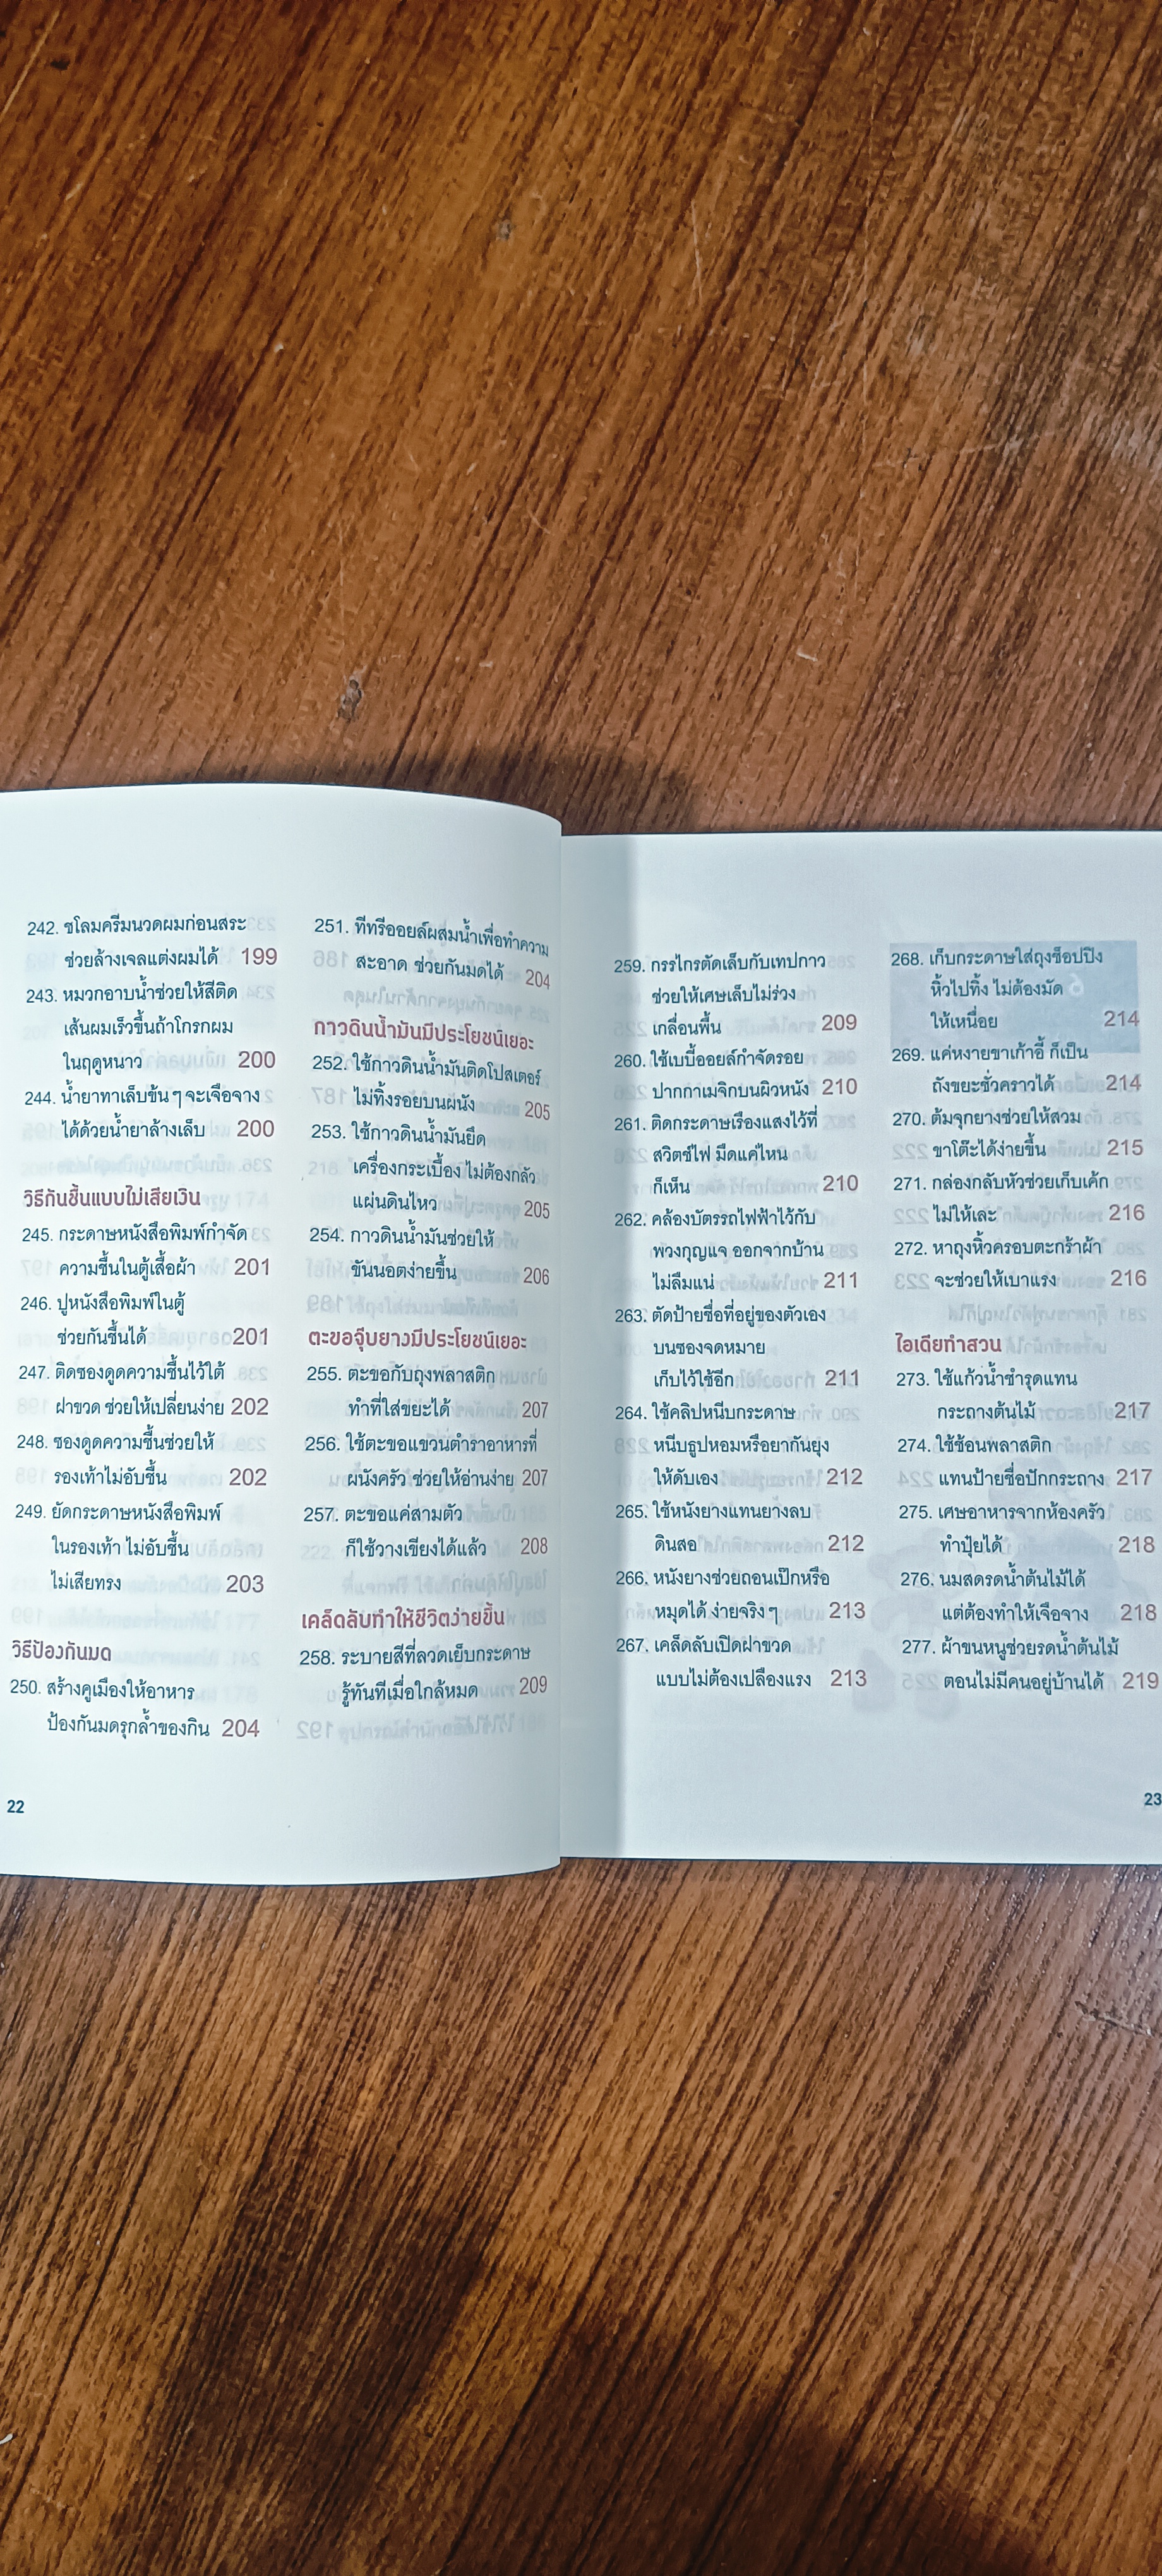 242. ชโลมครีมนวดผมก่อนสระ
ช่วยล้างเจลแต่งผมได้ 199
243. หมวกอาบน้ำช่วยให้สีติด
เส้นผมเร็วขึ้นถ้าโกรกผม
ในฤดูหนาว 200
244. น้ำยาทาเล็บข้น ๆ จะเจือจาง
ได้ด้วยน้ำยาล้างเล็บ 200
วิธีกันชื้นแบบไม่เสียเงิน
245. กระดาษหนังสือพิมพ์กำจัด
ความชื้นในตู้เสื้อผ้า 201
246. ปูหนังสือพิมพ์ในตู้
ช่วยกันชื้นได้ 201
247. ติดซองดูดความชื้นไว้ใต้
ฝาขวด ช่วยให้เปลี่ยนง่าย 202
248. ซองดูดความชื้นช่วยให้
รองเท้าไม่อับชื้น 202
249. ยัดกระดาษหนังสือพิมพ์
ในรองเท้า ไม่อับชื้น
ไม่เสียทรง 203
วิธีป้องกันมด
250. สร้างคูเมืองให้อาหาร
ป้องกันมดรุกล้ำของกิน 204
22
251. ทีทรีออยล์ผสมน้ำเพื่อทำความ
สะอาด ช่วยกันมดได้ 204
กาวดินน้ำมันมีประโยชน์เยอะ
252. ใช้กาวดินน้ำมันติดโปสเตอร์
ไม่ทิ้งรอยบนผนัง 205
253. ใช้กาวดินน้ำมันยึด
เครื่องกระเบื้อง ไม่ต้องกลัว
แผ่นดินไหว 205
254. กาวดินน้ำมันช่วยให้
ขันนอตง่ายขึ้น 206
ตะขอจุ๊บยางมีประโยชน์เยอะ
255. ตะขอกับถุงพลาสติก
ทำที่ใส่ขยะได้ 207
256. ใช้ตะขอแขวนตำราอาหารที่
ผนังครัว ช่วยให้อ่านง่าย 207
257. ตะขอแค่สามตัว
ก็ใช้วางเขียงได้แล้ว 208
เคล็ดลับทำให้ชีวิตง่ายขึ้น
258. ระบายสีที่ลวดเย็บกระดาษ
รู้ทันทีเมื่อใกล้หมด 209
259. กรรไกรตัดเล็บกับเทปกาว
ช่วยให้เศษเล็บไม่ร่วง
เกลื่อนพื้น 209
260. ใช้เบบี้ออยล์กำจัดรอย
ปากกาเมจิกบนผิวหนัง 210
261. ติดกระดาษเรืองแสงไว้ที่
สวิตช์ไฟ มืดแค่ไหน
ก็เห็น 210
262. คล้องบัตรรถไฟฟ้าไว้กับ
พวงกุญแจ ออกจากบ้าน
ไม่ลืมแน่ 211
263. ตัดป้ายชื่อที่อยู่ของตัวเอง
บนซองจดหมาย
เก็บไว้ใช้อีก 211
264. ใช้คลิปหนีบกระดาษ
หนีบธูปหอมหรือยากันยุง
ให้ดับเอง 212
265. ใช้หนังยางแทนยางลบ
ดินสอ 212
266. หนังยางช่วยถอนเป๊กหรือ
หมุดได้ ง่ายจริง ๆ 213
267. เคล็ดลับเปิดฝาขวด
แบบไม่ต้องเปลืองแรง 213
268. เก็บกระดาษใส่ถุงช็อปปิง
หิ้วไปทิ้ง ไม่ต้องมัด
ให้เหนื่อย 214
269. แค่หงายขาเก้าอี้ ก็เป็น
ถังขยะชั่วคราวได้ 214
270. ต้มจุกยางช่วยให้สวม
ขาโต๊ะได้ง่ายขึ้น 215
271. กล่องกลับหัวช่วยเก็บเค้ก
ไม่ให้เละ 216
272. หาถุงหิ้วครอบตะกร้าผ้า
จะช่วยให้เบาแรง 216
ไอเดียทำสวน
273. ใช้แก้วน้ำชำรุดแทน
กระถางต้นไม้ 217
274. ใช้ช้อนพลาสติก
แทนป้ายชื่อปักกระถาง 217
275. เศษอาหารจากห้องครัว
ทำปุ๋ยได้ 218
276. นมสดรดน้ำต้นไม้ได้
แต่ต้องทำให้เจือจาง 218
277. ผ้าขนหนูช่วยรดน้ำต้นไม้
ตอนไม่มีคนอยู่บ้านได้ 219
23